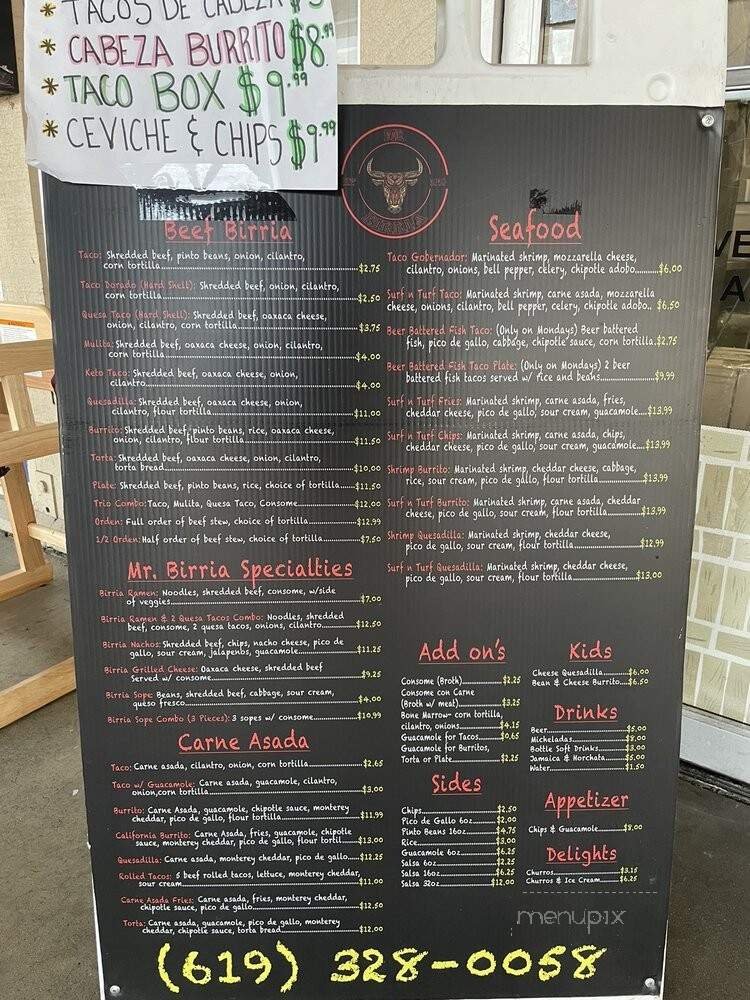 * TACOS DE CABEZA $3
* CABEZA BURRITO $8.99
* TACO BOX $9.99
* CEVICHE & CHIPS $9.99
MR.
BIRRIA
Beef Birria
Taco: Shredded beef, pinto beans, onion, cilantro,
corn tortilla $2.75
Taco Dorado (Hard Shell): Shredded beef, onion, cilantro,
corn tortilla $2.50
Quesa Taco (Hard Shell): Shredded beef, oaxaca cheese,
onion, cilantro, corn tortilla $3.75
Mulita: Shredded beef, oaxaca cheese, onion, cilantro,
corn tortilla $4.00
Keto Taco: Shredded beef, oaxaca cheese, onion,
cilantro $4.00
Quesadilla: Shredded beef, oaxaca cheese, onion,
cilantro, flour tortilla $11.00
Burrito: Shredded beef, pinto beans, rice, oaxaca cheese,
onion, cilantro, flour tortilla $11.50
Torta: Shredded beef, oaxaca cheese, onion, cilantro,
torta bread $10.00
Plate: Shredded beef, pinto beans, rice, choice of tortilla $11.50
Trio Combo: Taco, Mulita, Quesa Taco, Consome $12.00
Orden: Full order of beef stew, choice of tortilla $12.99
1/2 Orden: Half order of beef stew, choice of tortilla $7.50
Mr. Birria Specialties
Birria Ramen: Noodles, shredded beef, consome, w/side
of veggies $7.00
Birria Ramen & 2 Quesa Tacos Combo: Noodles, shredded
beef, consome, 2 quesa tacos, onions, cilantro $12.50
Birria Nachos: Shredded beef, chips, nacho cheese, pico de
gallo, sour cream, jalapenos, guacamole $11.25
Birria Grilled Cheese: Oaxaca cheese, shredded beef
Served w/ consome $9.25
Birria Sope: Beans, shredded beef, cabbage, sour cream,
queso fresco $4.00
Birria Sope Combo (3 Pieces): 3 sopes w/ consome $10.99
Carne Asada
Taco: Carne asada, cilantro, onion, corn tortilla $2.65
Taco w/ Guacamole: Carne asada, guacamole, cilantro,
onion, corn tortilla $3.00
Burrito: Carne Asada, guacamole, chipotle sauce, monterey
cheddar, pico de gallo, flour tortilla $11.99
California Burrito: Carne Asada, fries, guacamole, chipotle
sauce, monterey cheddar, pico de gallo, flour tortil $13.00
Quesadilla: Carne asada, monterey cheddar, pico de gallo $12.25
Rolled Tacos: 5 beef rolled tacos, lettuce, monterey cheddar,
sour cream $11.00
Carne Asada Fries: Carne asada, fries, monterey cheddar,
chipotle sauce, pico de gallo $12.50
Torta: Carne asada, guacamole, pico de gallo, monterey
cheddar, chipotle sauce, torta bread $12.00
Seafood
Taco Gobernador: Marinated shrimp, mozzarella cheese,
cilantro, onions, bell pepper, celery, chipotle adobo $6.00
Surf n Turf Taco: Marinated shrimp, carne asada, mozzarella
cheese, onions, cilantro, bell pepper, celery, chipotle adobo.. $6.50
Beer Battered Fish Taco: (Only on Mondays) Beer battered
fish, pico de gallo, cabbage, chipotle sauce, corn tortilla.$2.75
Beer Battered Fish Taco Plate: (Only on Mondays) 2 beer
battered fish tacos served w/ rice and beans $9.99
Surf n Turf Fries: Marinated shrimp, carne asada, fries,
cheddar cheese, pico de gallo, sour cream, guacamole $13.99
Surf n Turf Chips: Marinated shrimp, carne asada, chips,
cheddar cheese, pico de gallo, sour cream, guacamole $13.99
Shrimp Burrito: Marinated shrimp, cheddar cheese, cabbage,
rice, sour cream, pico de gallo, flour tortilla $13.99
Surf n Turf Burrito: Marinated shrimp, carne asada, cheddar
cheese, pico de gallo, sour cream, flour tortilla $13.99
Shrimp Quesadilla: Marinated shrimp, cheddar cheese,
pico de gallo, sour cream, flour tortilla $12.99
Surf n Turf Quesadilla: Marinated shrimp, cheddar cheese,
pico de gallo, sour cream, flour tortilla $13.00
Add on's
Consome (Broth) $2.25
Consome con Carne
(Broth w/ meat) $3.25
Bone Marrow- corn tortilla,
cilantro, onions $4.15
Guacamole for Tacos $0.65
Guacamole for Burritos,
Torta or Plate $2.25
Sides
Chips $2.50
Pico de Gallo 6oz $2.00
Pinto Beans 16oz $4.75
Rice $3.00
Guacamole 6oz $6.25
Salsa 6oz $2.25
Salsa 16oz $6.25
Salsa 32oz $12.00
Kids
Cheese Quesadilla $6.00
Bean & Cheese Burrito $6.50
Drinks
Beer $5.00
Micheladas $8.00
Bottle Soft Drinks $3.00
Jamaica & Horchata $5.00
Water $1.50
Appetizer
Chips & Guacamole $8.00
Delights
Churros $3.15
Churros & Ice Cream $6.25
menupix
(619) 328-0058